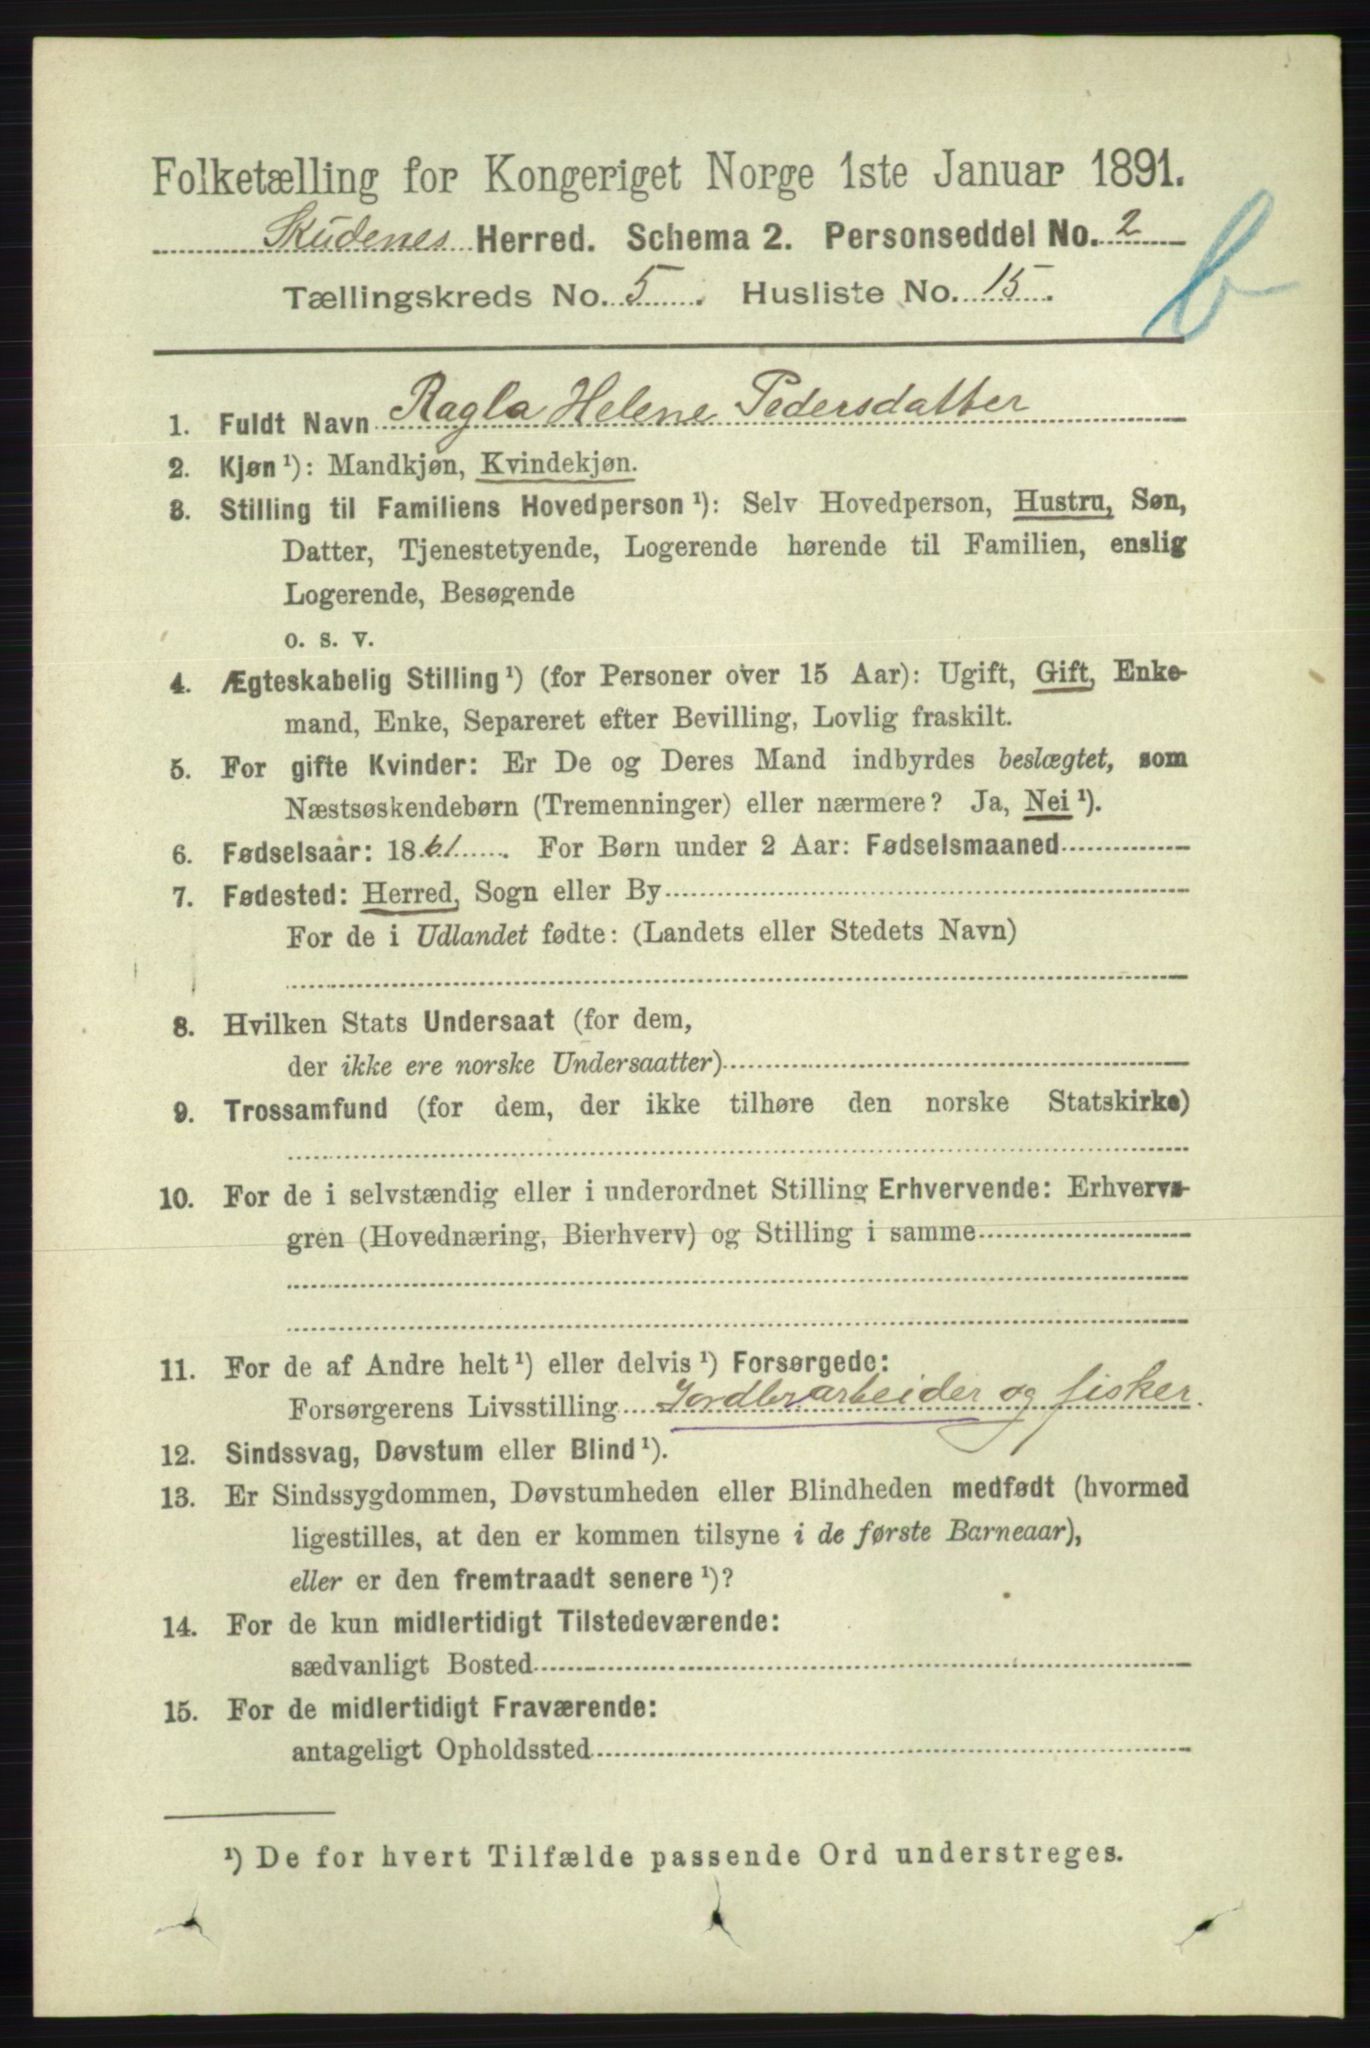 Folketælling for Kongeriget Norge 1ste Januar 1891.
Skudenes Herred. Schema 2. Personseddel No. 2
Tællingskreds No. 5. Husliste No. 15.
b
1. Fuldt Navn Ragla Helene Pedersdatter
2. Kjøn ¹): Mandkjøn, Kvindekjøn.
3. Stilling til Familiens Hovedperson ¹): Selv Hovedperson, Hustru, Søn,
Datter, Tjenestetyende, Logerende hørende til Familien, enslig
Logerende, Besøgende
o. s. v.
4. Ægteskabelig Stilling ¹) (for Personer over 15 Aar): Ugift, Gift, Enke-
mand, Enke, Separeret efter Bevilling, Lovlig fraskilt.
5. For gifte Kvinder: Er De og Deres Mand indbyrdes beslægtet, som
Næstsøskendebørn (Tremenninger) eller nærmere? Ja, Nei ¹).
6. Fødselsaar: 1861. For Børn under 2 Aar: Fødselsmaaned
7. Fødested: Herred, Sogn eller By
For de i Udlandet fødte: (Landets eller Stedets Navn)
8. Hvilken Stats Undersaat (for dem,
der ikke ere norske Undersaatter)
9. Trossamfund (for dem, der ikke tilhøre den norske Statskirke)
10. For de i selvstændig eller i underordnet Stilling Erhvervende: Erhvervs-
gren (Hovednæring, Bierhverv) og Stilling i samme
11. For de af Andre helt ¹) eller delvis ¹) Forsørgede:
Forsørgerens Livsstilling Jordbrarbeider og fisker.
12. Sindssvag, Døvstum eller Blind ¹).
13. Er Sindssygdommen, Døvstumheden eller Blindheden medfødt (hvormed
ligestilles, at den er kommen tilsyne i de første Barneaar),
eller er den fremtraadt senere ¹)?
14. For de kun midlertidigt Tilstedeværende:
sædvanligt Bosted
15. For de midlertidigt Fraværende:
antageligt Opholdssted
¹) De for hvert Tilfælde passende Ord understreges.